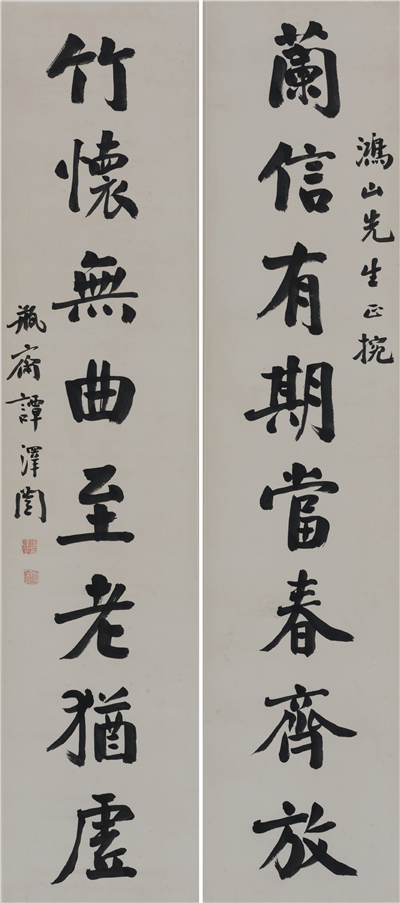 鴻山先生正捥
蘭信有期當春齊放
竹懷無曲至老猶虛
瓶齋譚澤闓